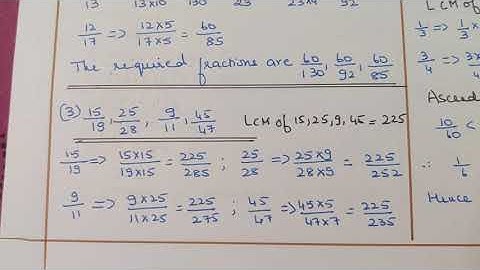 13 13×10 130 23 23×4 92
12/17 => 12×5/17×5 = 60/85
The required fractions are 60/130, 60/92, 60/85
(3) 15/19, 25/28, 9/11, 45/47 LCM of 15,25,9,45 = 225
15/19 => 15×15/19×15 = 225/285 ; 25/28 => 25×9/28×9 = 225/252
9/11 => 9×25/11×25 = 225/275 ; 45/47 => 45×5/47×7 = 225/235
LCM o
1/3 => 1/3 ×
3/4 => 3×
Ascend
10/60 <
∴ 1/6
Hence